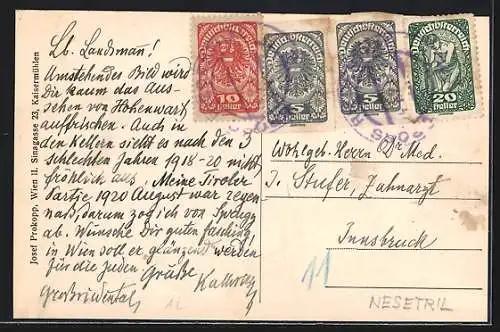 Josef Prokopp, Wien II. Sinagasse 23, Kaisermühlen
Lb. Landsmann!
Umstehendes Bild wird
Dir kaum das Aus-
sehen von Hohenwart
auffrischen. Auch in
den Kellern sieht es nach den 3
schlechten Jahren 1918-20 nicht
fröhlich aus. Meine Tiroler
Partie 1920 August war regen
naß, darum zog ich von
ab. Wünsche Dir guten Fasching
in Wien soll er glänzend werden
für die Juden Grüße
Deutschösterreich
10
Heller
Deutschösterreich
5
Heller
Deutschösterreich
5
Heller
Deutschösterreich
20
Heller
Wohlgeb. Herrn Dr Med.
J. Stufer, Zahnarzt
Innsbruck
11
NESETRIL